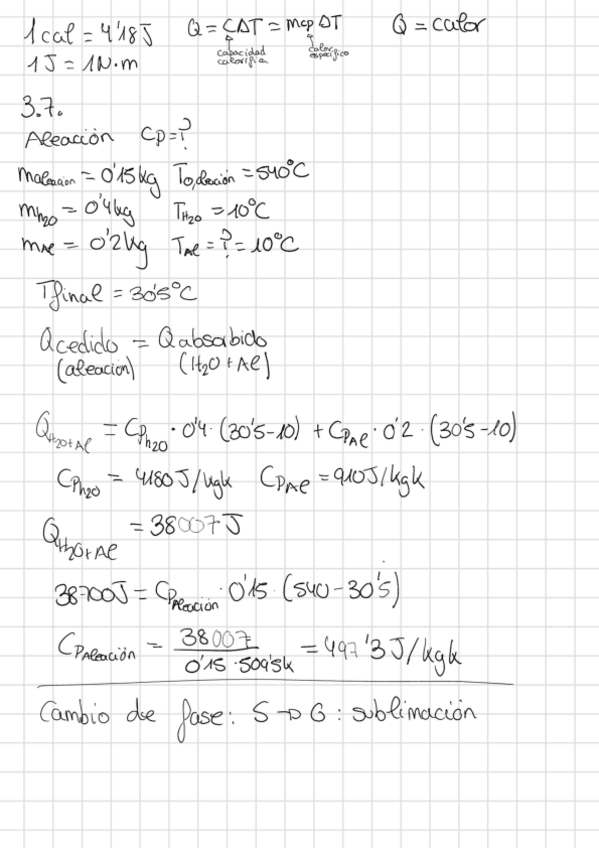 1 cal = 4'18 J Q = CΔT = mcpΔT Q = calor
capacidad calorífica calor específico
1 J = 1N·m
3.7.
Aleación Cp=?
maleación = 0'15 kg To,aleación = 540°C
mh20 = 0'4 kg TH20 = 10°C
mAl = 0'2 kg TAl = ? = 10°C
Tfinal = 30'5°C
Qcedido = Qabsorbido
(aleación) (H2O + Al)
QH2O+Al = Cph20 · 0'4 · (30'5-10) + CpAl · 0'2 · (30'5-10)
Cph20 = 4180 J/kgk CpAl = 910 J/kgk
QH2O+Al = 38007 J
38700J = CpAleación · 0'15 · (540 - 30'5)
CpAleación = 38007 / 0'15 · 509'5k = 497'3 J/kgk
Cambio de fase: S → G : sublimación